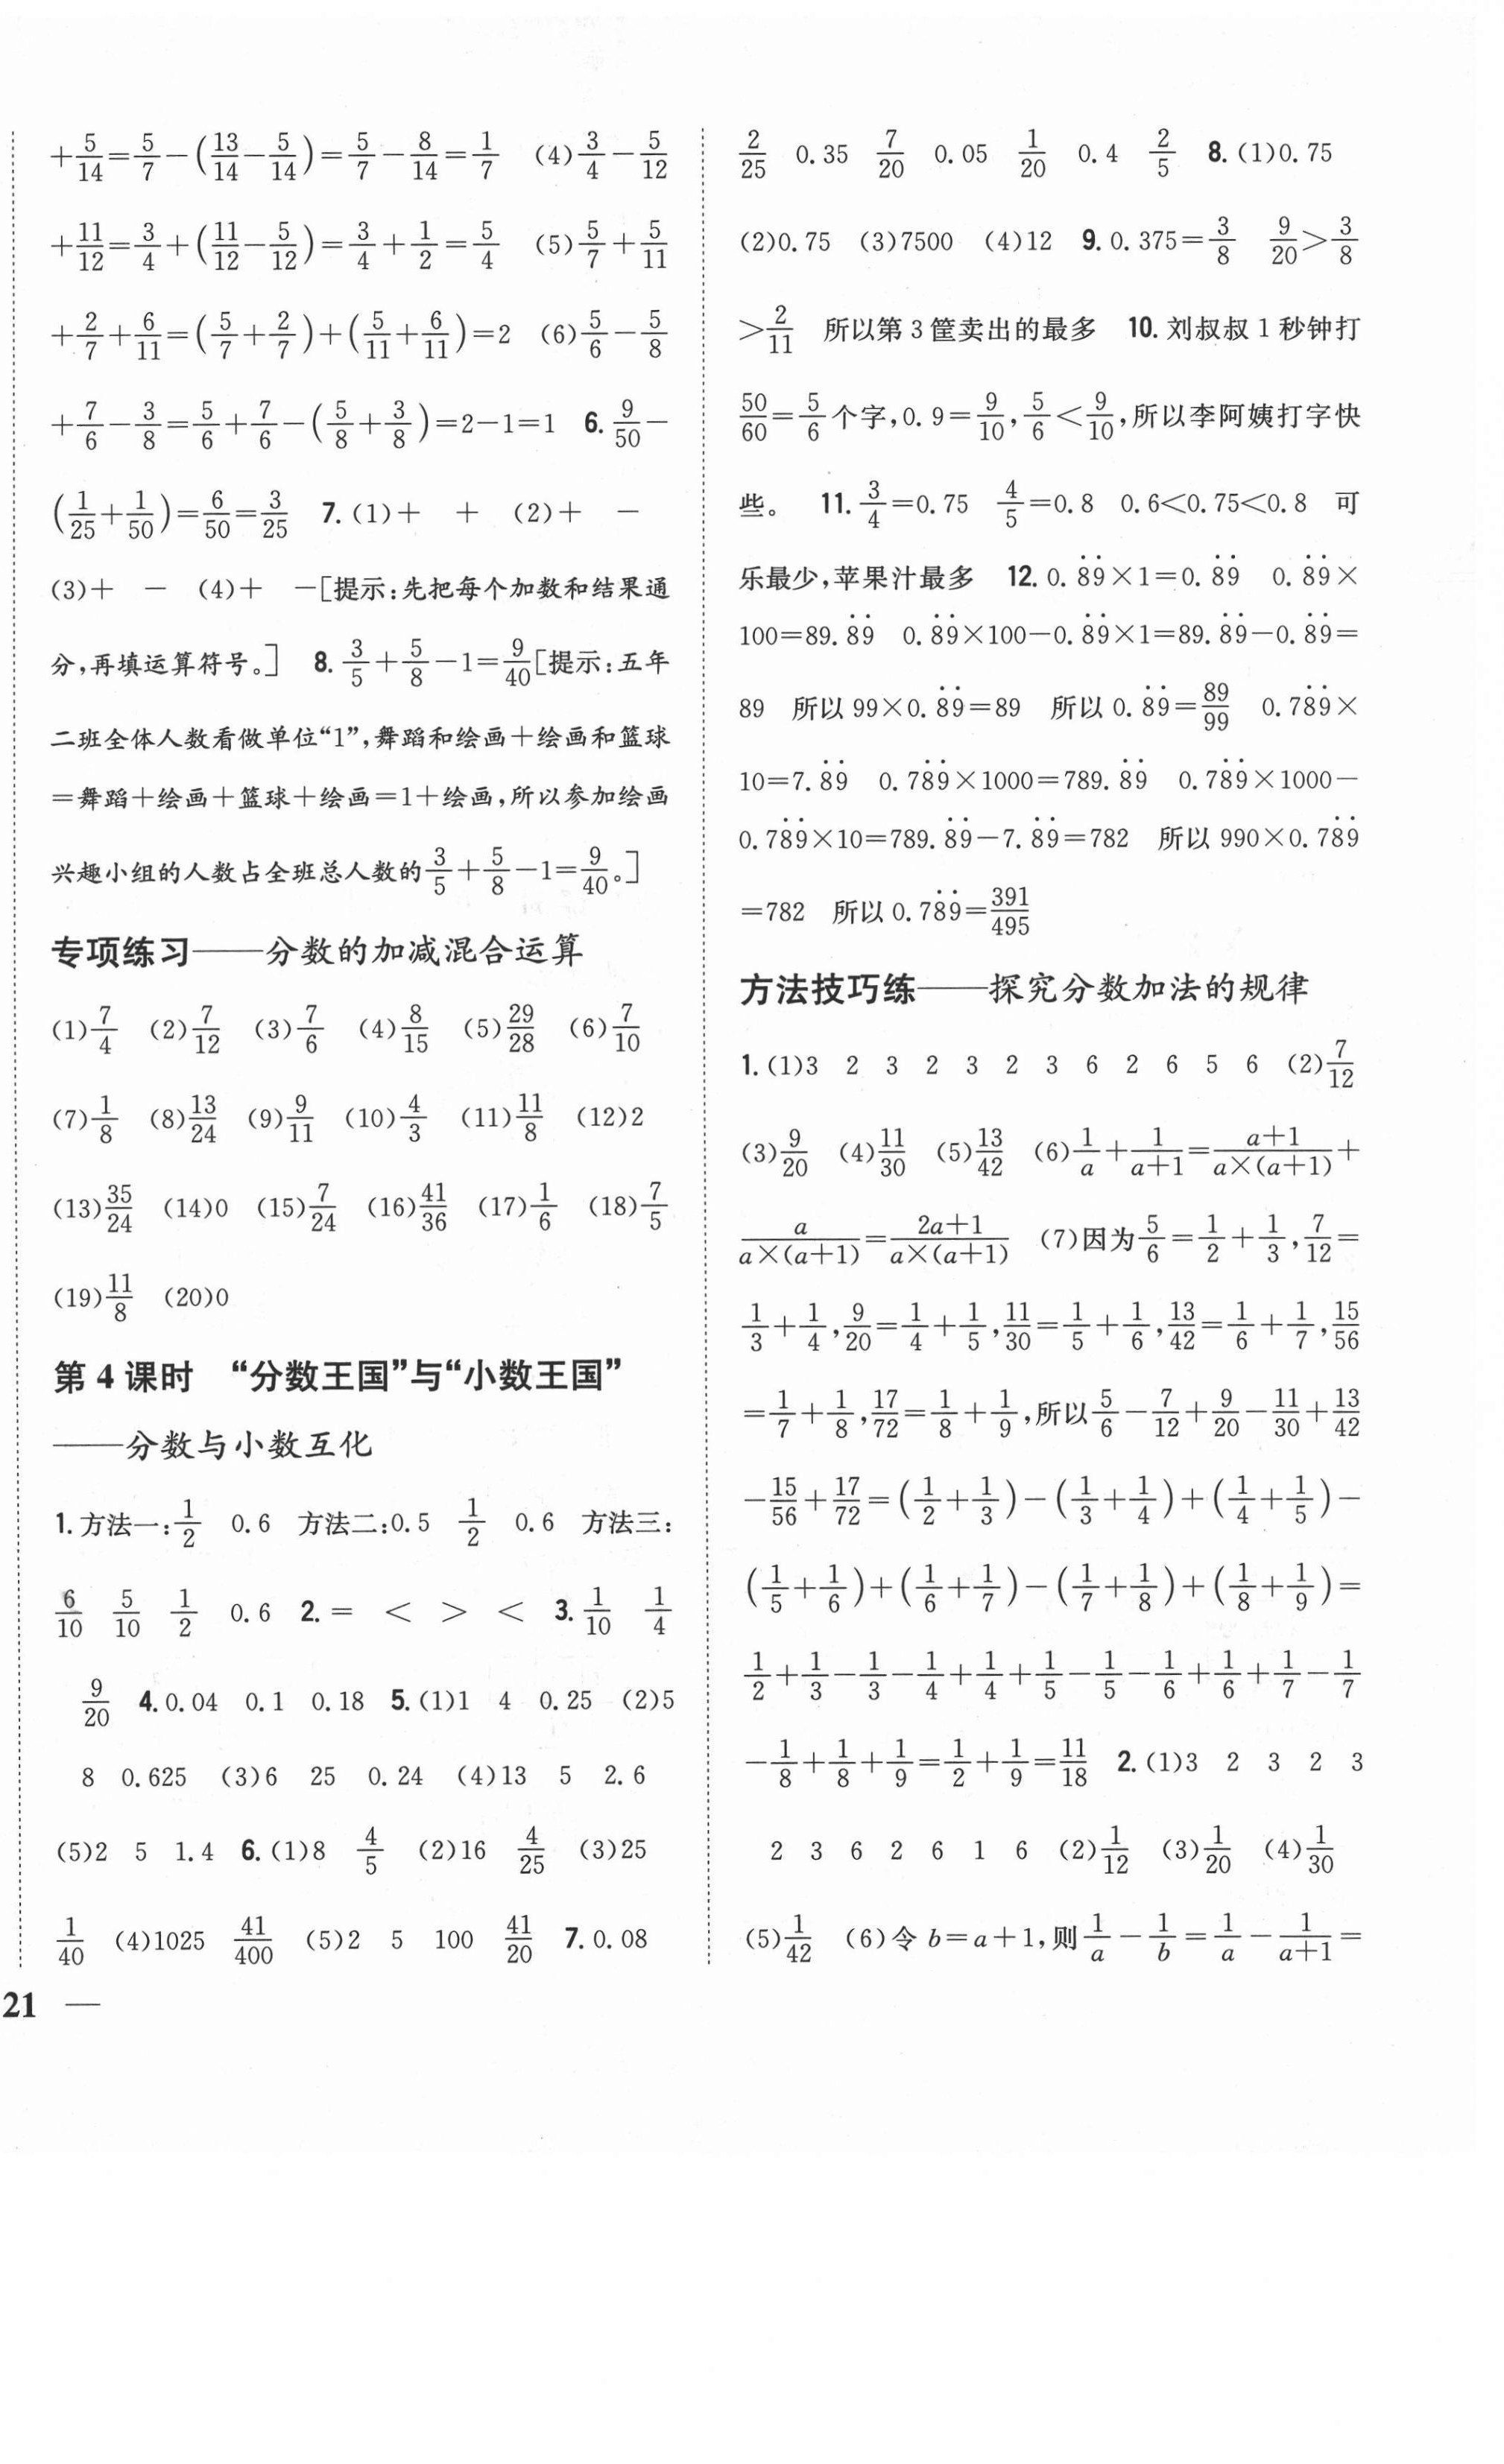 +5/14=5/7-(13/14-5/14)=5/7-8/14=1/7 (4)3/4-5/12
+11/12=3/4+(11/12-5/12)=3/4+1/2=5/4 (5)5/7+5/11
+2/7+6/11=(5/7+2/7)+(5/11+6/11)=2 (6)5/6-5/8
+7/6-3/8=5/6+7/6-(5/8+3/8)=2-1=1 6. 9/50-
(1/25+1/50)=6/50=3/25 7. (1)+ + (2)+ -
(3)+ - (4)+ -[提示:先把每个加数和结果通
分,再填运算符号。] 8. 3/5+5/8-1=9/40[提示:五年
二班全体人数看做单位“1”,舞蹈和绘画+绘画和篮球
=舞蹈+绘画+篮球+绘画=1+绘画,所以参加绘画
兴趣小组的人数占全班总人数的3/5+5/8-1=9/40。]
专项练习——分数的加减混合运算
(1)7/4 (2)7/12 (3)7/6 (4)8/15 (5)29/28 (6)7/10
(7)1/8 (8)13/24 (9)9/11 (10)4/3 (11)11/8 (12)2
(13)35/24 (14)0 (15)7/24 (16)41/36 (17)1/6 (18)7/5
(19)11/8 (20)0
第 4 课时 “分数王国”与“小数王国”
——分数与小数互化
1. 方法一:1/2 0.6 方法二:0.5 1/2 0.6 方法三:
6/10 5/10 1/2 0.6 2. = < > < 3. 1/10 1/4
9/20 4. 0.04 0.1 0.18 5. (1)1 4 0.25 (2)5
8 0.625 (3)6 25 0.24 (4)13 5 2.6
(5)2 5 1.4 6. (1)8 4/5 (2)16 4/25 (3)25
1/40 (4)1025 41/400 (5)2 5 100 41/20 7. 0.08
21 —
2/25 0.35 7/20 0.05 1/20 0.4 2/5 8. (1)0.75
(2)0.75 (3)7500 (4)12 9. 0.375=3/8 9/20>3/8
>2/11 所以第 3 筐卖出的最多 10. 刘叔叔 1 秒钟打
50/60=5/6个字,0.9=9/10,5/6<9/10,所以李阿姨打字快
些。 11. 3/4=0.75 4/5=0.8 0.6<0.75<0.8 可
乐最少,苹果汁最多 12. 0.8̇9̇×1=0.8̇9̇ 0.8̇9̇×
100=89.8̇9̇ 0.8̇9̇×100-0.8̇9̇×1=89.8̇9̇-0.8̇9̇=
89 所以 99×0.8̇9̇=89 所以 0.8̇9̇=89/99 0.78̇9̇×
10=7.8̇9̇ 0.78̇9̇×1000=789.8̇9̇ 0.78̇9̇×1000-
0.78̇9̇×10=789.8̇9̇-7.8̇9̇=782 所以 990×0.78̇9̇
=782 所以 0.78̇9̇=391/495
方法技巧练——探究分数加法的规律
1. (1)3 2 3 2 3 2 3 6 2 6 5 6 (2)7/12
(3)9/20 (4)11/30 (5)13/42 (6)1/a+1/(a+1)=(a+1)/(a×(a+1))+
a/(a×(a+1))=(2a+1)/(a×(a+1)) (7)因为5/6=1/2+1/3,7/12=
1/3+1/4,9/20=1/4+1/5,11/30=1/5+1/6,13/42=1/6+1/7,15/56
=1/7+1/8,17/72=1/8+1/9,所以5/6-7/12+9/20-11/30+13/42
-15/56+17/72=(1/2+1/3)-(1/3+1/4)+(1/4+1/5)-
(1/5+1/6)+(1/6+1/7)-(1/7+1/8)+(1/8+1/9)=
1/2+1/3-1/3-1/4+1/4+1/5-1/5-1/6+1/6+1/7-1/7
-1/8+1/8+1/9=1/2+1/9=11/18 2. (1)3 2 3 2 3
2 3 6 2 6 1 6 (2)1/12 (3)1/20 (4)1/30
(5)1/42 (6)令 b=a+1,则1/a-1/b=1/a-1/(a+1)=